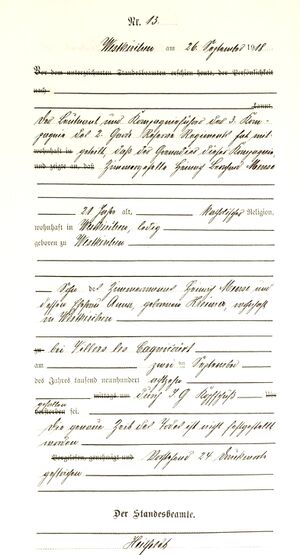 Nr. 13.
Westkirchen am 26. September 1918
Vor dem unterzeichneten Standesbeamten erschien heute, der Persönlichkeit
nach
kannt,
Der Leutnant und Kompagnieführer des 3. Kom-
pagnie des 2. Garde Reserve Regiments hat mit-
wohnhaft in geteilt, daß der Grenadier dieser Kompagnie,
und zeigte an, daß Zimmergeselle
28 Jahre alt, Katholischer Religion,
wohnhaft in Westkirchen, ledig
geboren zu Westkirchen
Sohn des Zimmermanns und
dessen Ehefrau Anna, geborenen wohnhaft
in Westkirchen
zu bei Villers les Cagnicourt
am zwei ten September
des Jahres tausend neunhundert achtzehn
mittags um durch I G Kopfschuß Uhr
gefallen
verstorben sei.
Die genaue Zeit des Todes ist nicht festgestellt
worden
Vorgelesen, genehmigt und Vorstehend 24 Druckworte
gestrichen
Der Standesbeamte.